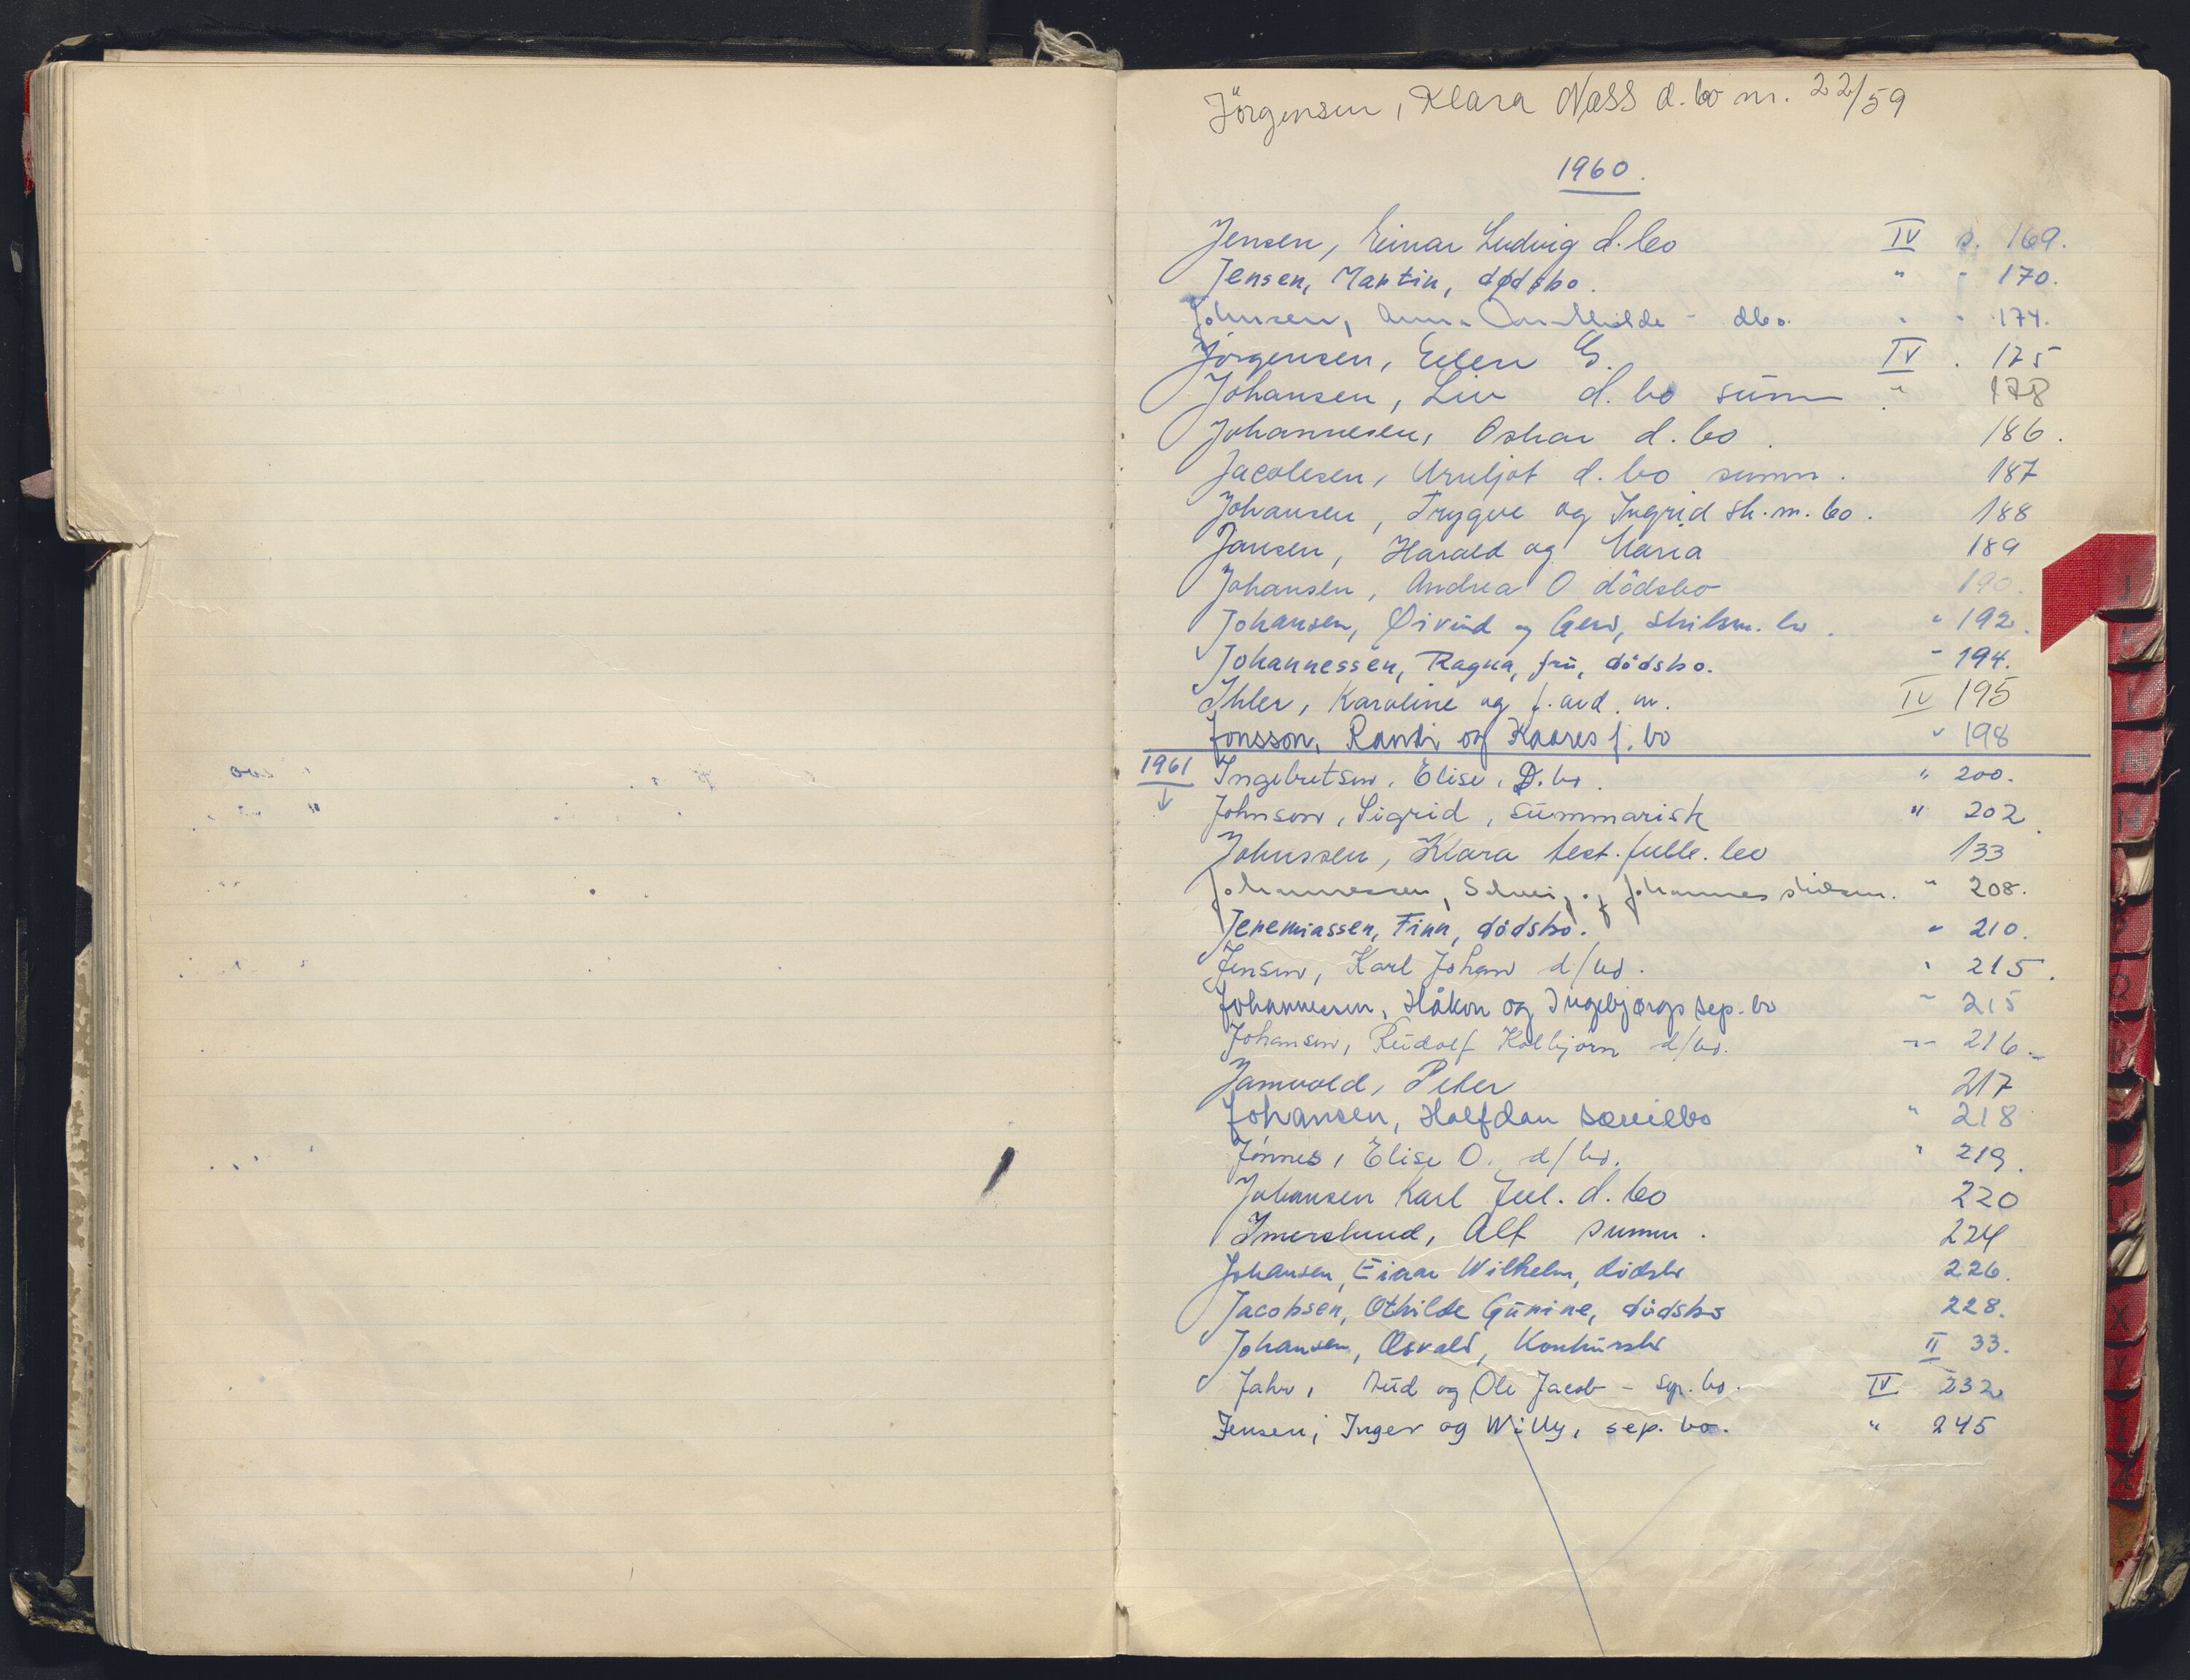 Jörgensen, Klara Næss d. bo nr. 22/59
1960.
Jensen, Einar Ludvig d. bo IV s. 169.
Jensen, Martin, dødsbo. " " 170.
Johnsen, Anna dbo. " " 174.
Jörgensen, Ellen G. IV . 175
Johansen, Liv d. bo summ " 178
Johannesen, Oskar d. bo. 186.
Jacobsen, Arnljot d. bo summ. 187
Johansen, Trygve og Ingrid sk. m. bo. 188
Jansen, Harald og Maria 189
Johansen, Andrea O dödsbo 190.
Johansen, Øivind og Gerd, skilsm. bo. " 192.
Johannessen, Ragna, fru, dödsbo. " 194.
Ihler, Karoline og f. avd. m. IV 195
Jonsson, Randi og Kaares f. bo " 198
1961 Ingebretsen, Elise, D. bo. " 200.
Johnson, Sigrid, summarisk " 202.
Johnssen, Klara test. fullb. bo 133
Johannessen, Solveig og Johannes skilsm. " 208.
Jeremiassen, Finn, dödsbo. " 210.
Jensen, Karl Johan d/bo. " 215.
Johannesen, Håkon og Ingebjørgs sep. bo " 215
Johansen, Rudolf Kolbjörn d/bo. -"- 216.-
Jamvold, Peter 217
Johansen, Halfdan særeiebo " 218
Jönnes, Elise O. d/bo. " 219.
Johansen Karl Jul. d. bo 220
Imerslund, Alf summ. 224
Johansen, Einar Wilhelm, dödsbo 226.
Jacobsen, Othilde Gunine, dödsbo 228.
Johansen, Osvald, Konkursbo II 33.
Jahr, Aud og Ole Jacob - sep. bo. IV 232
Jensen, Inger og Willy, sep. bo. " 245
J
K
L
M
P
Q
R
T
U
X
Y